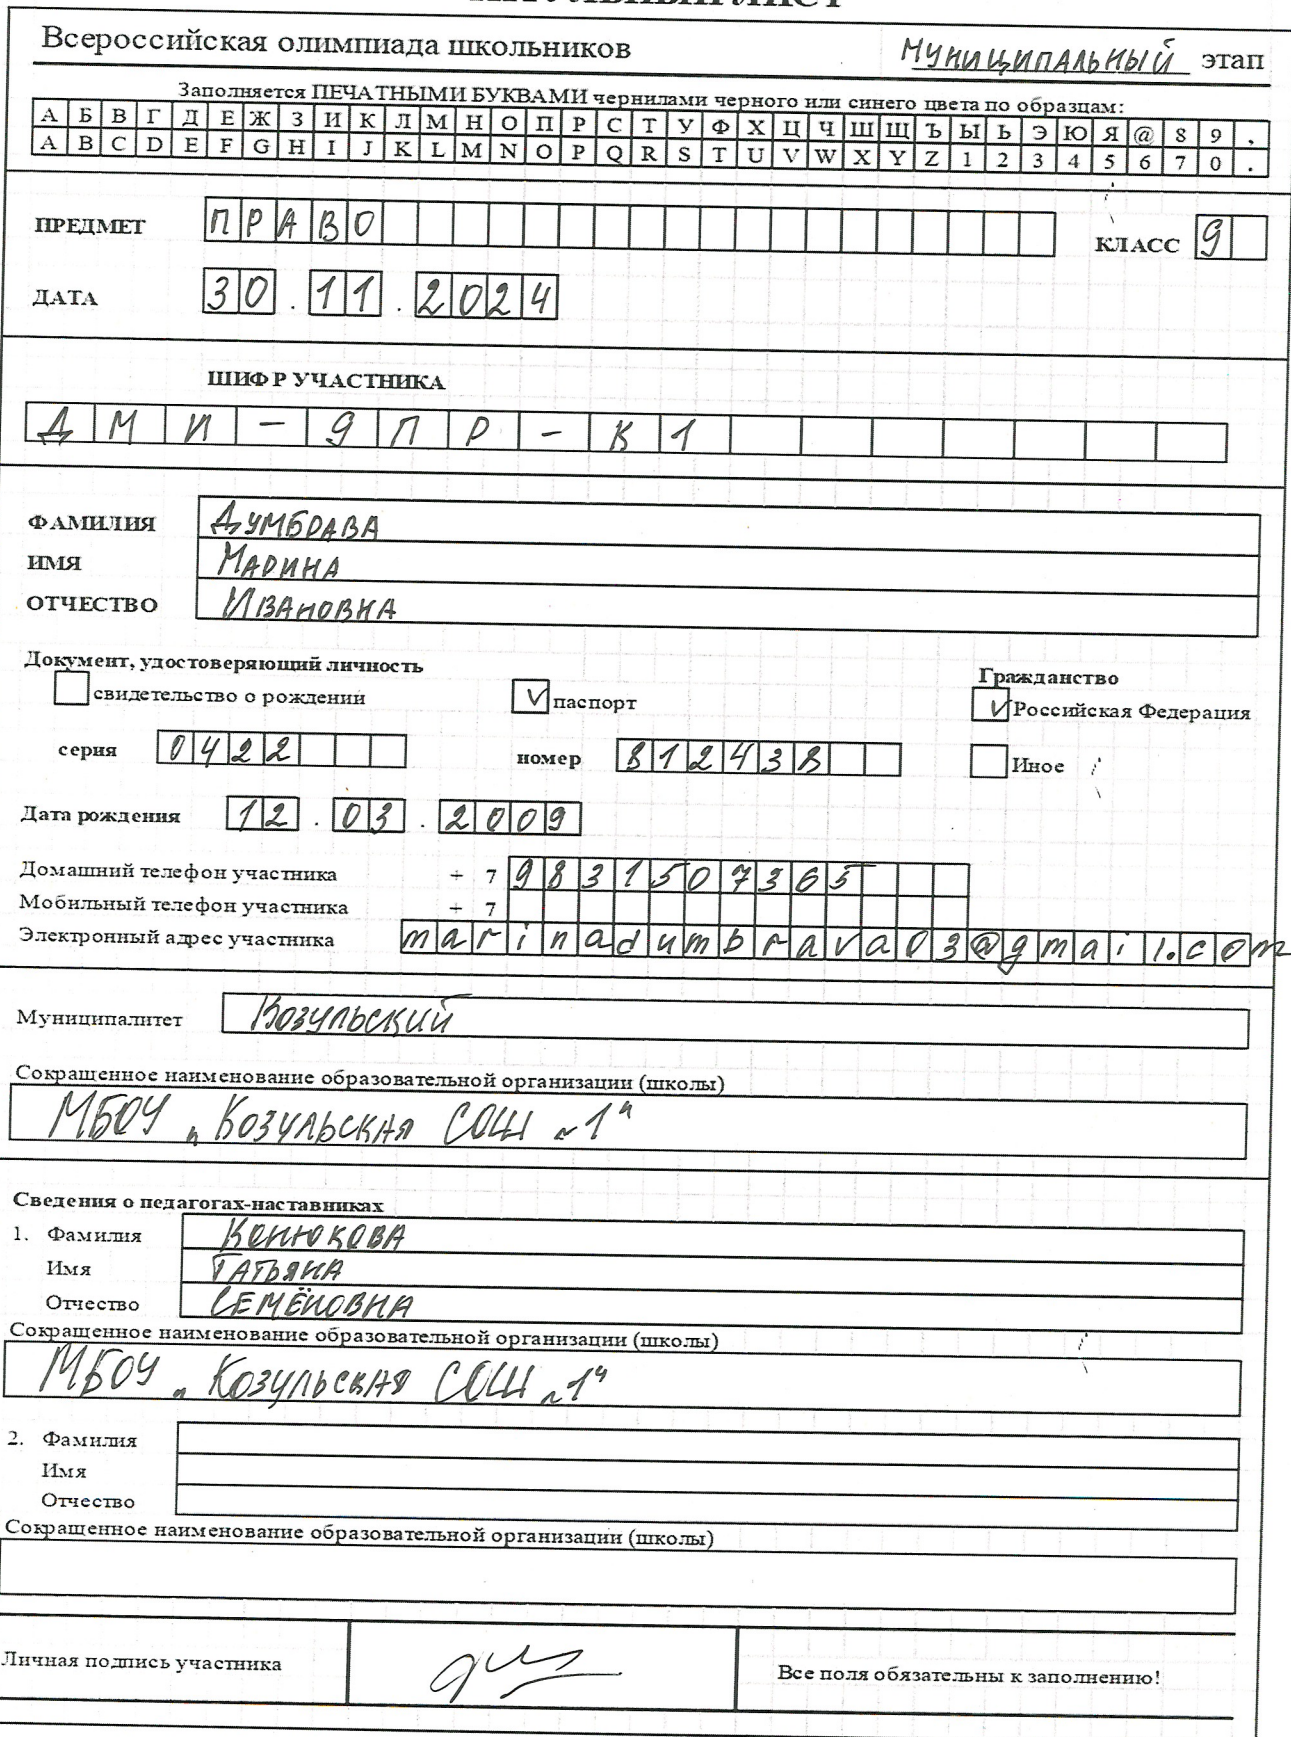 Всероссийская олимпиада школьников Муниципальный этап
Заполняется ПЕЧАТНЫМИ БУКВАМИ чернилами черного или синего цвета по образцам:
А Б В Г Д Е Ж З И К Л М Н О П Р С Т У Ф Х Ц Ч Ш Щ Ъ Ы Ь Э Ю Я @ 8 9 ,
A B C D E F G H I J K L M N O P Q R S T U V W X Y Z 1 2 3 4 5 6 7 0 .
ПРЕДМЕТ ПРАВО КЛАСС 9
ДАТА 30.11.2024
ШИФР УЧАСТНИКА
ДМИ-9ПР-К1
ФАМИЛИЯ Думбрава
ИМЯ Марина
ОТЧЕСТВО Ивановна
Документ, удостоверяющий личность Гражданство
свидетельство о рождении V паспорт V Российская Федерация
серия 0422 номер 812438 Иное
Дата рождения 12.03.2009
Домашний телефон участника + 7 9831507365
Мобильный телефон участника + 7
Электронный адрес участника marinadumbrava03@gmail.com
Муниципалитет Козульский
Сокращенное наименование образовательной организации (школы)
МБОУ „Козульская СОШ №1"
Сведения о педагогах-наставниках
1. Фамилия Конюкова
Имя Татьяна
Отчество Семёновна
Сокращенное наименование образовательной организации (школы)
МБОУ „Козульская СОШ №1"
2. Фамилия
Имя
Отчество
Сокращенное наименование образовательной организации (школы)
Личная подпись участника Все поля обязательны к заполнению!